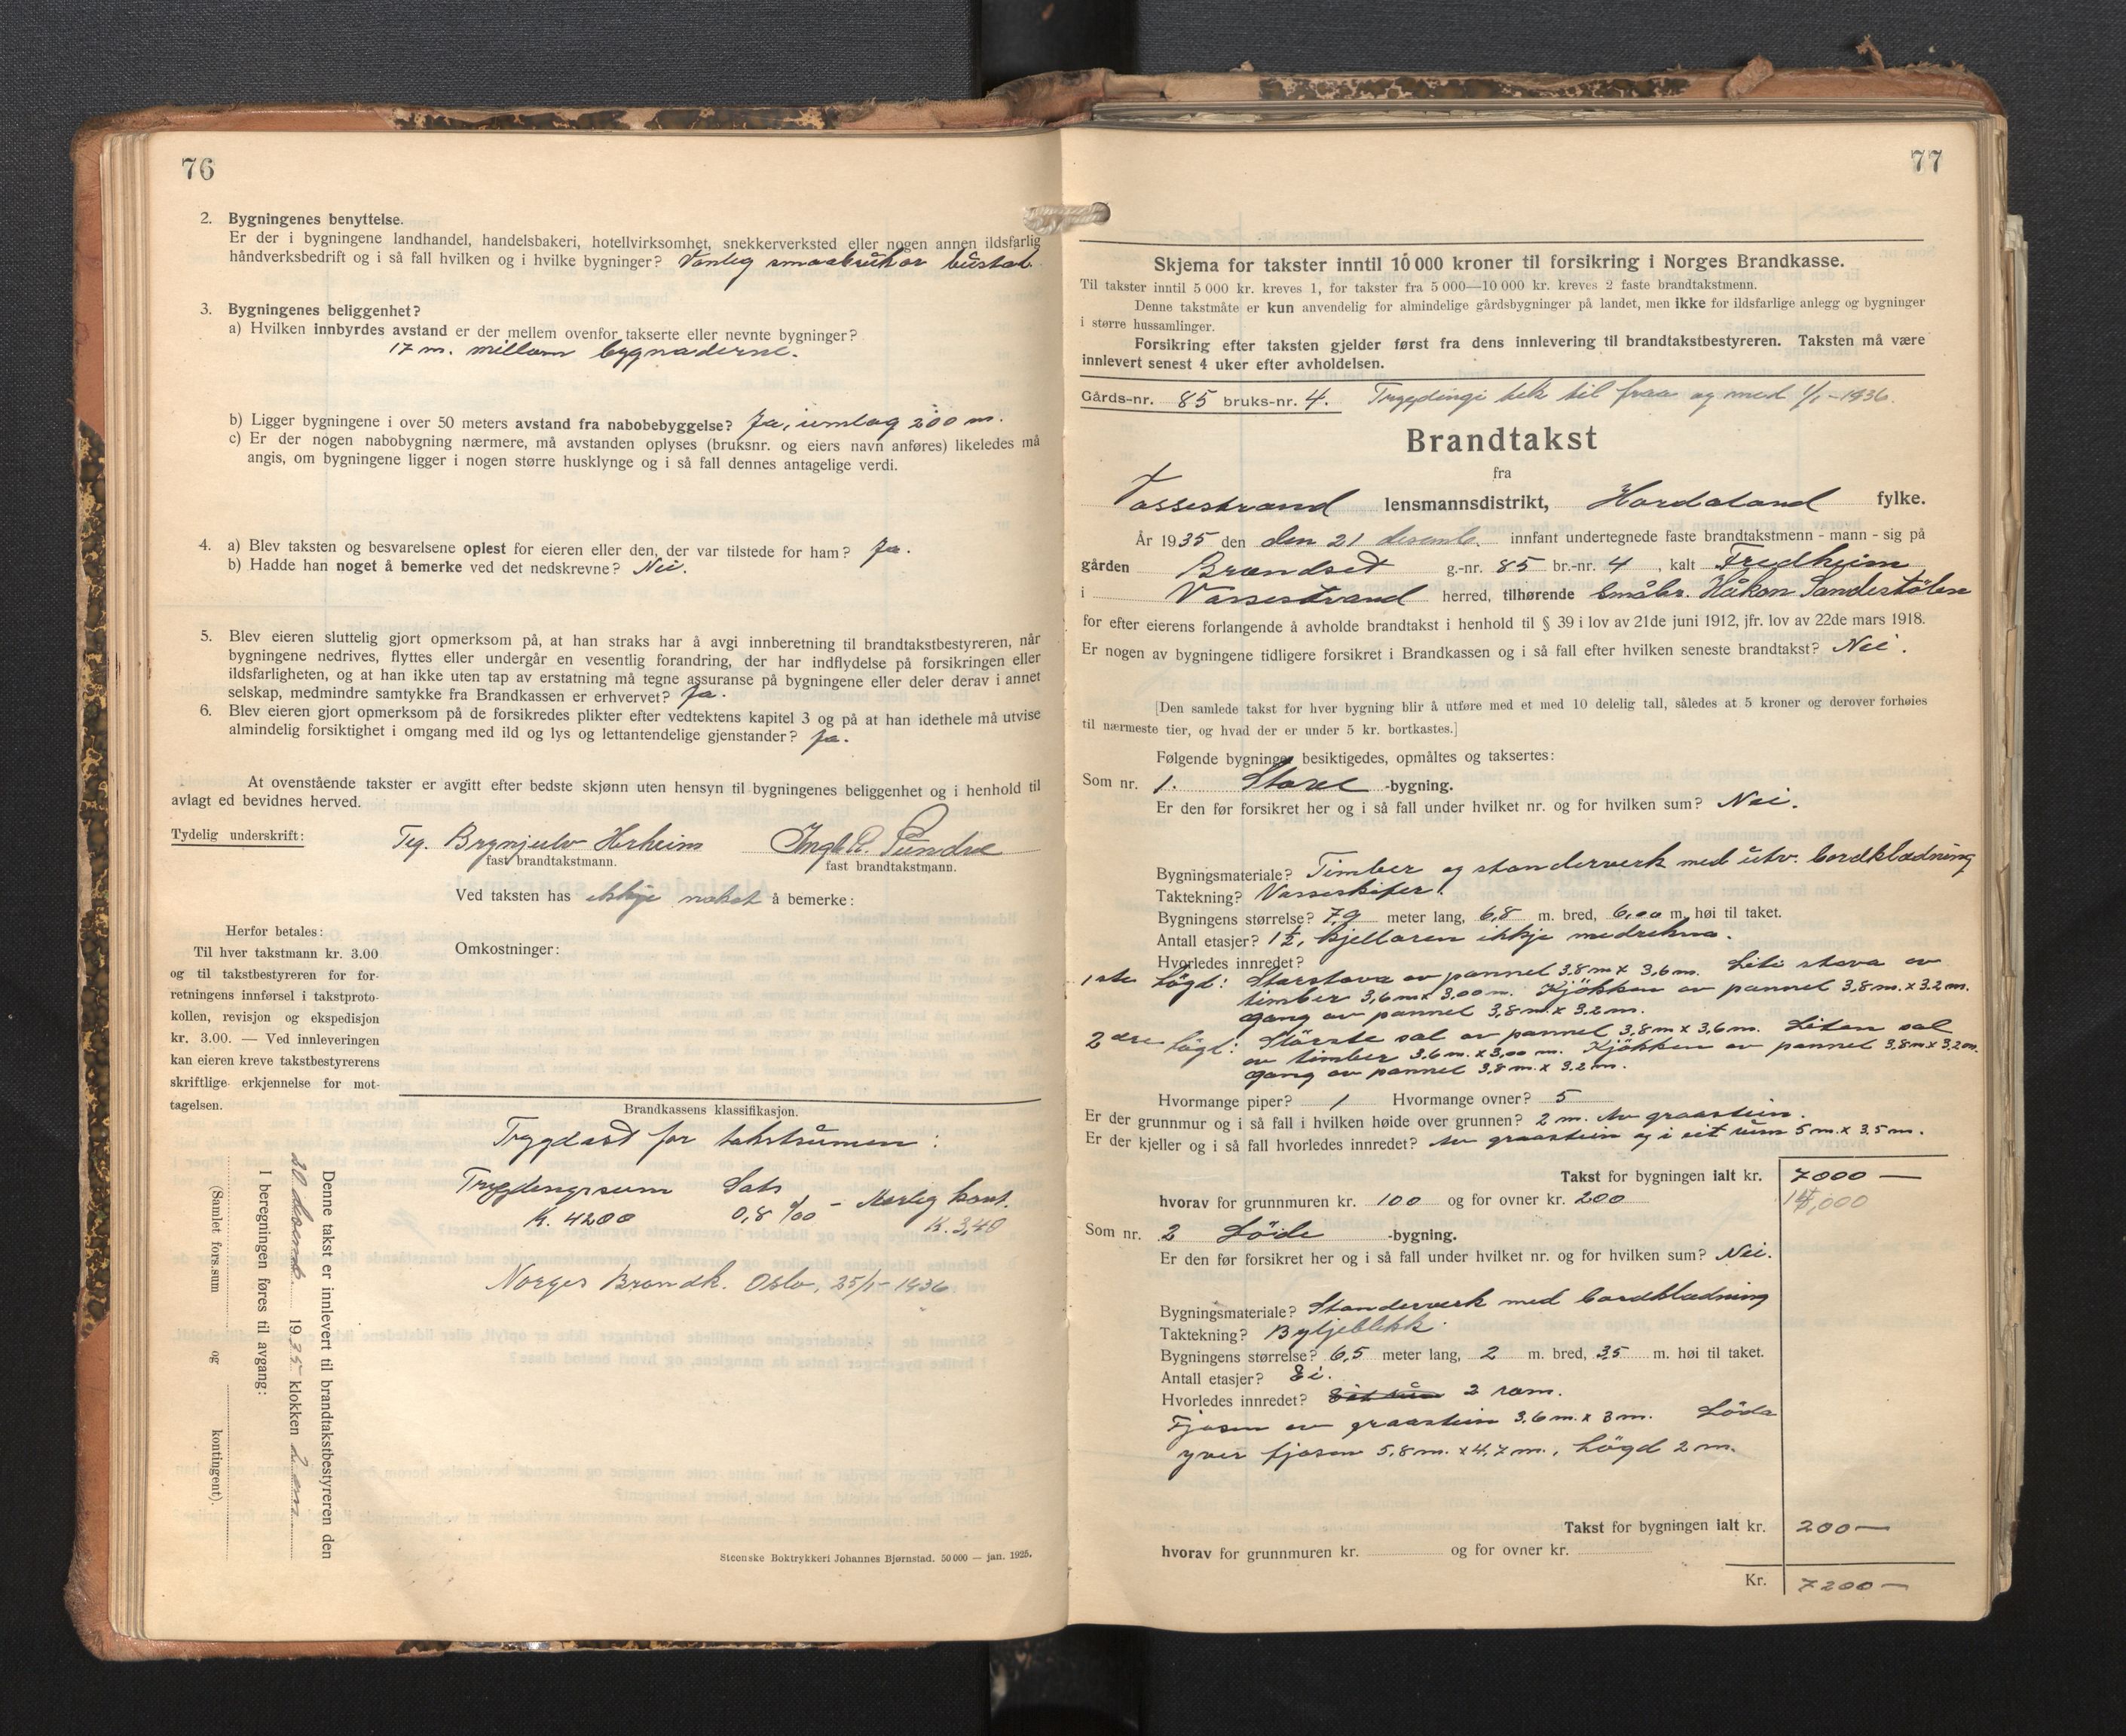 76
2. Bygningenes benyttelse.
Er der i bygningene landhandel, handelsbakeri, hotellvirksomhet, snekkerverksted eller nogen annen ildsfarlig
håndverksbedrift og i så fall hvilken og i hvilke bygninger? Vanleg smaabrukar bustad.
3. Bygningenes beliggenhet?
a) Hvilken innbyrdes avstand er der mellem ovenfor takserte eller nevnte bygninger?
17 m. millom bygnaderne.
b) Ligger bygningene i over 50 meters avstand fra nabobebyggelse? Ja, umlag 200 m.
c) Er der nogen nabobygning nærmere, må avstanden oplyses (bruksnr. og eiers navn anføres) likeledes må
angis, om bygningene ligger i nogen større husklynge og i så fall dennes antagelige verdi.
4. a) Blev taksten og besvarelsene oplest for eieren eller den, der var tilstede for ham? Ja.
b) Hadde han noget å bemerke ved det nedskrevne? Nei.
5. Blev eieren sluttelig gjort opmerksom på, at han straks har å avgi innberetning til brandtakstbestyreren, når
bygningene nedrives, flyttes eller undergår en vesentlig forandring, der har indflydelse på forsikringen eller
ildsfarligheten, og at han ikke uten tap av erstatning må tegne assuranse på bygningene eller deler derav i annet
selskap, medmindre samtykke fra Brandkassen er erhvervet? Ja.
6. Blev eieren gjort opmerksom på de forsikredes plikter efter vedtektens kapitel 3 og på at han idethele må utvise
almindelig forsiktighet i omgang med ild og lys og lettantendelige gjenstander? Ja.
At ovenstående takster er avgitt efter bedste skjønn uten hensyn til bygningenes beliggenhet og i henhold til
avlagt ed bevidnes herved.
Tydelig underskrift: Teg. Brynjulv Herheim Ingb. R. Sundve
fast brandtakstmann. fast brandtakstmann.
Ved taksten has ikkje nokot å bemerke:
Omkostninger:
Herfor betales:
Til hver takstmann kr. 3.00
og til takstbestyreren for for-
retningens innførsel i takstproto-
kollen, revisjon og ekspedisjon
kr. 3.00. — Ved innleveringen
kan eieren kreve takstbestyrerens
skriftlige erkjennelse for mot-
tagelsen.
Brandkassens klassifikasjon.
Trygdast for takstsumen:
Trygdingssum Sats
K. 4200 0,8 ‰ – Aarleg kont.
K. 3,40
Norges Brandk. Oslo, 25/1-1936
Denne takst er innlevert til brandtakstbestyreren den
30 desemb. 1935 klokken
I beregningen føres til avgang:
(Samlet fors.sum og kontingent).
Steenske Boktrykkeri Johannes Bjørnstad. 50 000 — jan. 1925.
77
Skjema for takster inntil 10 000 kroner til forsikring i Norges Brandkasse.
Til takster inntil 5 000 kr. kreves 1, for takster fra 5 000—10 000 kr. kreves 2 faste brandtakstmenn.
Denne takstmåte er kun anvendelig for almindelige gårdsbygninger på landet, men ikke for ildsfarlige anlegg og bygninger
i større hussamlinger.
Forsikring efter taksten gjelder først fra dens innlevering til brandtakstbestyreren. Taksten må være
innlevert senest 4 uker efter avholdelsen.
Gårds-nr. 85 bruks-nr. 4. Trygdingi tek til fraa og med 1/1-1936.
Brandtakst
fra
Vossestrand lensmannsdistrikt, Hordaland fylke.
År 1935 den den 21 desemb. innfant undertegnede faste brandtakstmenn - mann - sig på
gården Brandset g.-nr. 85 br.-nr. 4, kalt Fredheim
i Vossestrand herred, tilhørende Småbr. Håkon Sandestölen
for efter eierens forlangende å avholde brandtakst i henhold til § 39 i lov av 21de juni 1912, jfr. lov av 22de mars 1918.
Er nogen av bygningene tidligere forsikret i Brandkassen og i så fall efter hvilken seneste brandtakst? Nei.
[Den samlede takst for hver bygning blir å utføre med et med 10 delelig tall, således at 5 kroner og derover forhøies
til nærmeste tier, og hvad der er under 5 kr. bortkastes.]
Følgende bygninger besiktigedes, opmåltes og taksertes:
Som nr. 1. Stove -bygning.
Er den før forsikret her og i så fall under hvilket nr. og for hvilken sum? Nei.
Bygningsmateriale? Timber og standerverk med utv. bordklædning
Taktekning? Vosseskifer.
Bygningens størrelse? 7,9 meter lang, 6,8 m. bred, 6,00 m. høi til taket.
Antall etasjer? 1½, kjellaren ikkje medrekna.
Hvorledes innredet?
1ste högd: Storstova av pannel 3,8 m x 3,6 m. Liti stova av
timber 3,6 m x 3,00 m. Kjökken av pannel 3,8 m. x 3.2 m.
gang av pannel 3,8 m. x 3.2 m.
2dre högd: Störste sal av pannel 3,8 m x 3,6 m. Liten sal
av timber 3.6 m. x 3,00 m. Kjökken av pannel 3,8 m x 3,2 m.
gang av pannel 3,8 m. x 3.2 m.
Hvormange piper? 1 Hvormange ovner? 5
Er der grunnmur og i så fall i hvilken høide over grunnen? 2 m. Av graastein.
Er der kjeller og i så fall hvorledes innredet? Av graastein og i eit rum 5 m. x 3,5 m.
Takst for bygningen ialt kr. 7000 —
hvorav for grunnmuren kr. 100 og for ovner kr. 200
Som nr. 2 Löde -bygning.
Er den før forsikret her og i så fall under hvilket nr. og for hvilken sum? Nei.
Bygningsmateriale? Standerverk med bordklædning
Taktekning? Bylgjeblikk.
Bygningens størrelse? 6,5 meter lang, 2 m. bred, 3,5 m. høi til taket.
Antall etasjer? Ei.
Hvorledes innredet? 2 rom.
Fjosen av graastein 3,6 m. x 3 m. Löda
yver fjosen 5,8 m. x 4,7 m., högd 2 m.
Takst for bygningen ialt kr. 200 —
hvorav for grunnmuren kr. og for ovner kr.
Kr. 7200 —